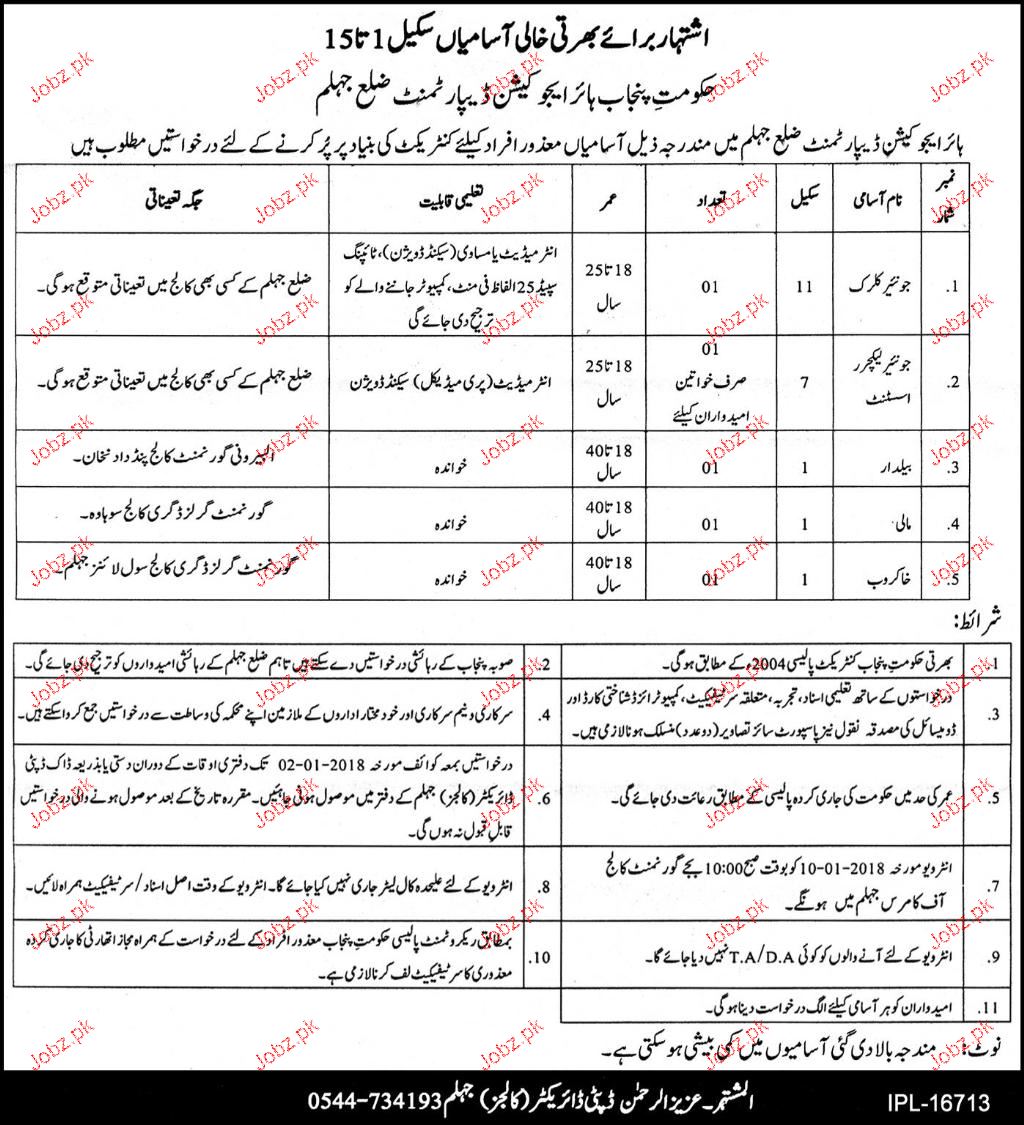 اشتہار برائے بھرتی خالی آسامیاں سکیل 1 تا 15
حکومتِ پنجاب ہائر ایجوکیشن ڈیپارٹمنٹ ضلع جہلم
ہائر ایجوکیشن ڈیپارٹمنٹ ضلع جہلم میں مندرجہ ذیل آسامیاں معذور افراد کیلئے کنٹریکٹ کی بنیاد پر پُر کرنے کے لئے درخواستیں مطلوب ہیں
نمبر شمار | نام آسامی | سکیل | تعداد | عمر | تعلیمی قابلیت | جگہ تعیناتی
1. | جونئیر کلرک | 11 | 01 | 18 تا 25 سال | انٹرمیڈیٹ یا مساوی (سیکنڈ ڈویژن)، ٹائپنگ سپیڈ 25 الفاظ فی منٹ، کمپیوٹر جاننے والے کو ترجیح دی جائے گی | ضلع جہلم کے کسی بھی کالج میں تعیناتی متوقع ہوگی۔
2. | جونئیر لیکچرر اسسٹنٹ | 7 | 01 صرف خواتین امیدواران کیلئے | 18 تا 25 سال | انٹرمیڈیٹ (پری میڈیکل) سیکنڈ ڈویژن | ضلع جہلم کے کسی بھی کالج میں تعیناتی متوقع ہوگی۔
3. | بیلدار | 1 | 01 | 18 تا 40 سال | خواندہ | البیرونی گورنمنٹ کالج پنڈ دادنخان۔
4. | مالی | 1 | 01 | 18 تا 40 سال | خواندہ | گورنمنٹ گرلز ڈگری کالج سوہاوہ۔
5. | خاکروب | 1 | 01 | 18 تا 40 سال | خواندہ | گورنمنٹ گرلز ڈگری کالج سول لائنز جہلم۔
شرائط:
1. بھرتی حکومتِ پنجاب کنٹریکٹ پالیسی 2004ء کے مطابق ہوگی۔
2. صوبہ پنجاب کے رہائشی درخواستیں دے سکتے ہیں تاہم ضلع جہلم کے رہائشی امیدواروں کو ترجیح دی جائے گی۔
3. درخواستوں کے ساتھ تعلیمی اسناد، تجربہ، متعلقہ سرٹیفکیٹ، کمپیوٹرائزڈ شناختی کارڈ اور
ڈومیسائل کی مصدقہ نقول نیز پاسپورٹ سائز تصاویر (دو عدد) منسلک ہونا لازمی ہیں۔
4. سرکاری و نیم سرکاری اور خود مختار اداروں کے ملازمین اپنے محکمہ کی وساطت سے درخواستیں جمع کروا سکتے ہیں۔
5. عمر کی حد میں حکومت کی جاری کردہ پالیسی کے مطابق رعائت دی جائے گی۔
6. درخواستیں بمعہ کوائف مورخہ 02-01-2018 تک دفتری اوقات کے دوران دستی یا بذریعہ ڈاک ڈپٹی
ڈائریکٹر (کالجز) جہلم کے دفتر میں موصول ہونی چاہئیں۔ مقررہ تاریخ کے بعد موصول ہونے والی درخواستیں
قابلِ قبول نہ ہوں گی۔
7. انٹرویو مورخہ 10-01-2018 کو بوقت صبح 10:00 بجے گورنمنٹ کالج
آف کامرس جہلم میں ہونگے۔
8. انٹرویو کے لئے علیحدہ کال لیٹر جاری نہیں کیا جائے گا۔ انٹرویو کے وقت اصل اسناد/سرٹیفیکیٹ ہمراہ لائیں۔
9. انٹرویو کے لئے آنے والوں کو کوئی T.A/D.A نہیں دیا جائے گا۔
10. بمطابق ریکروٹمنٹ پالیسی حکومتِ پنجاب معذور افراد کے لئے درخواست کے ہمراہ مجاز اتھارٹی کا جاری کردہ
معذوری کا سرٹیفیکیٹ لف کرنا لازمی ہے۔
11. امیدواران کو ہر آسامی کیلئے الگ درخواست دینا ہوگی۔
نوٹ: مندجہ بالا دی گئی آسامیوں میں کمی بیشی ہو سکتی ہے۔
المشتہر۔ عزیز الرحمٰن ڈپٹی ڈائریکٹر (کالجز) جہلم 0544-734193
IPL-16713
Jobz.pk